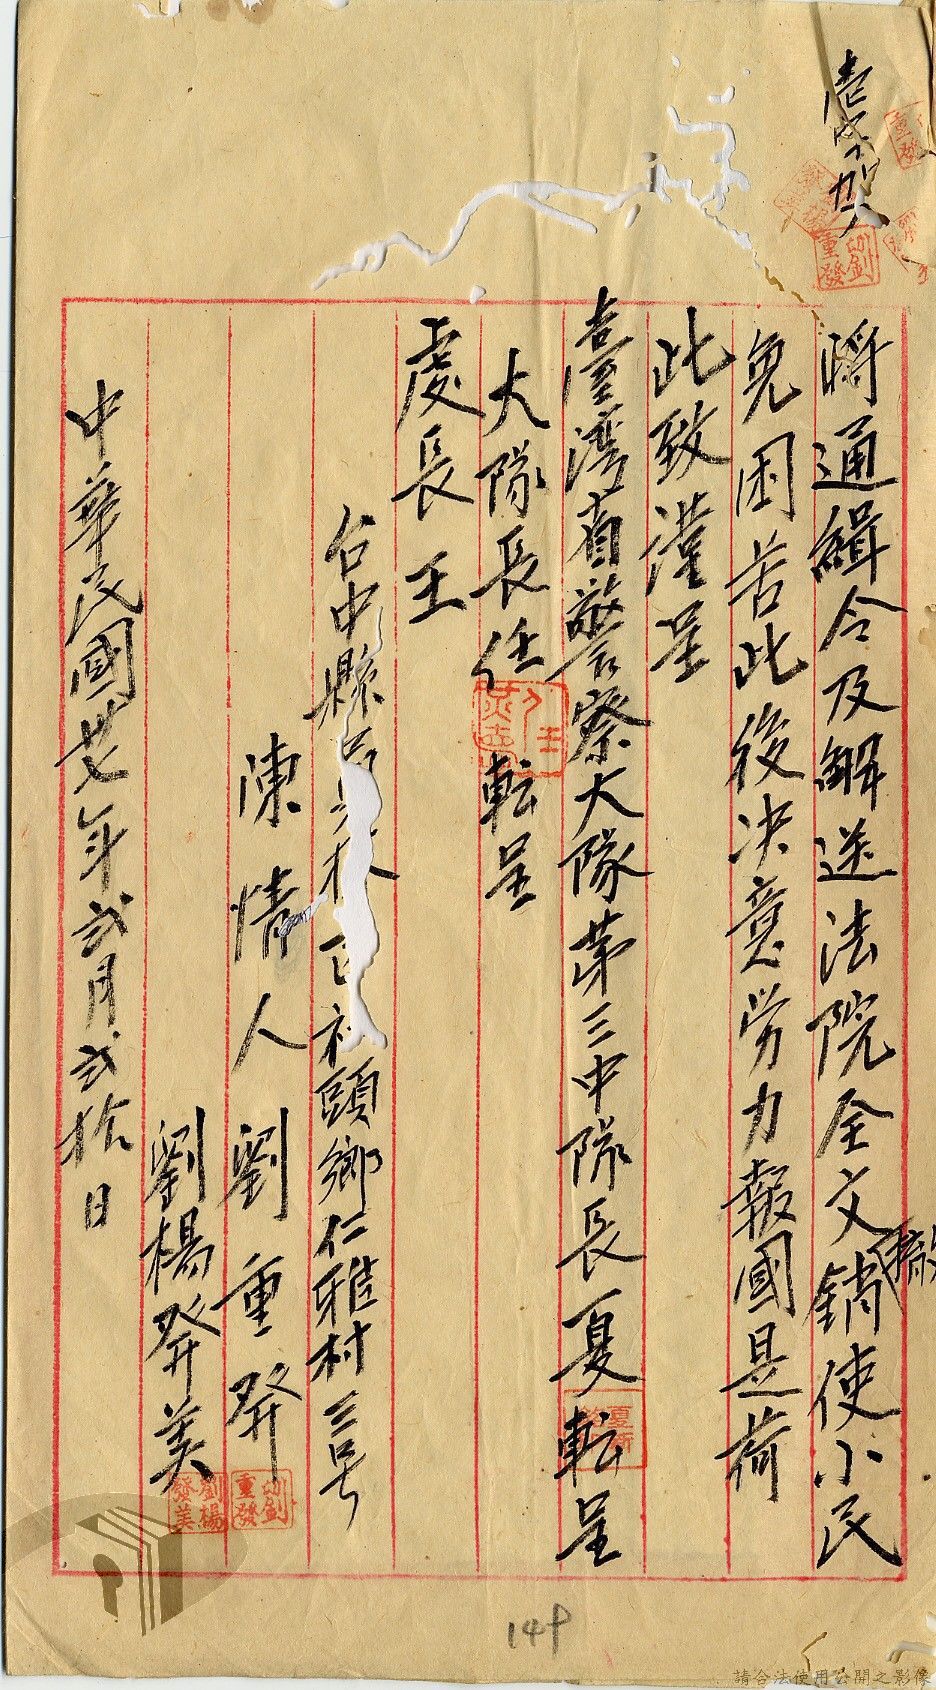 壹字加
將通緝令及解送法院全文銷使小民
撤
免困苦此後決意労力報國是荷
此致謹呈
臺湾省警察大隊第三中隊長夏転呈
大隊長任 転呈
處長 王
台中縣 社頭鄉仁雅村三号
陳情人 劉重發
劉楊發美
中華民國卅七年弍月弍拾日
劉重發
劉楊發美
149
請合法使用公開之影像